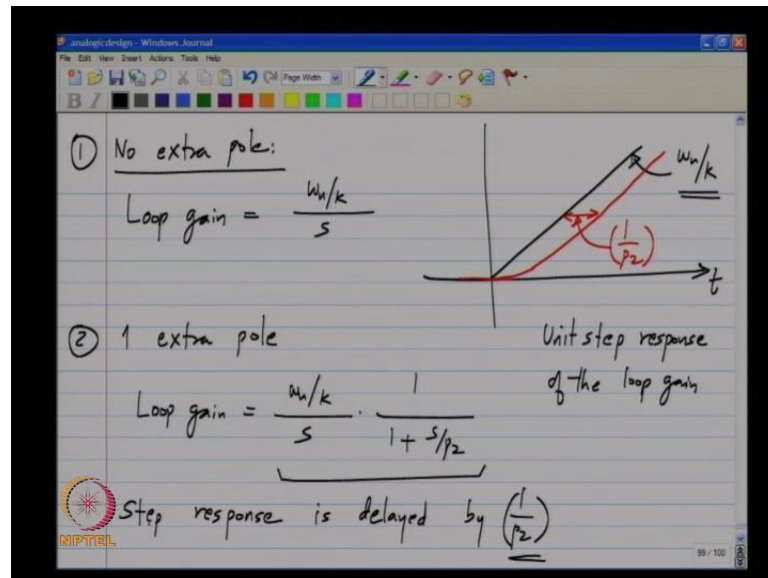 analogicdesign - Windows Journal
File Edit View Insert Actions Tools Help
Page Width
B I
① No extra pole:
Loop gain = ωu/k / s
ωu/k
(1/p2)
t
② 1 extra pole
Unit step response
of the loop gain
Loop gain = ωu/k / s · 1 / 1 + s/p2
Step response is delayed by (1/p2)
NPTEL
99 / 100